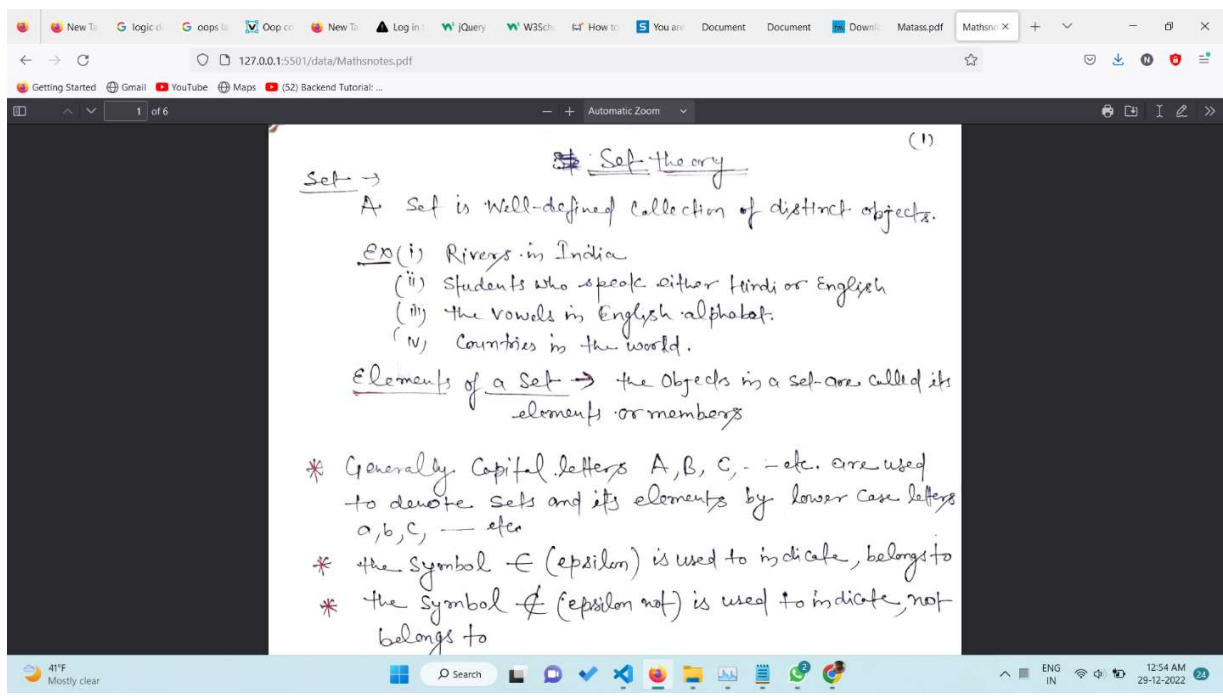 New Ta
logic d
oops la
Oop co
New Ta
Log in
jQuery
W3Sch
How to
You are
Document
Document
Downl
Matass.pdf
Mathsno
127.0.0.1:5501/data/Mathsnotes.pdf
Getting Started Gmail YouTube Maps (52) Backend Tutorial: ...
1 of 6
Automatic Zoom
(1)
Set theory
Set →
A Set is Well-defined Collection of distinct objects.
Ex (i) Rivers in India
(ii) Students who speak either Hindi or English
(iii) the vowels in English alphabet.
(iv) Countries in the world.
Elements of a Set → the Objects in a set are called its
elements or members
* Generally Capital letters A, B, C, - - etc. are used
to denote sets and its elements by lower case letters
a, b, c, — etc
* the Symbol ∈ (epsilon) is used to indicate, belongs to
* the Symbol ∉ (epsilon not) is used to indicate, not
belongs to
41°F
Mostly clear
Search
ENG
IN
12:54 AM
29-12-2022
24